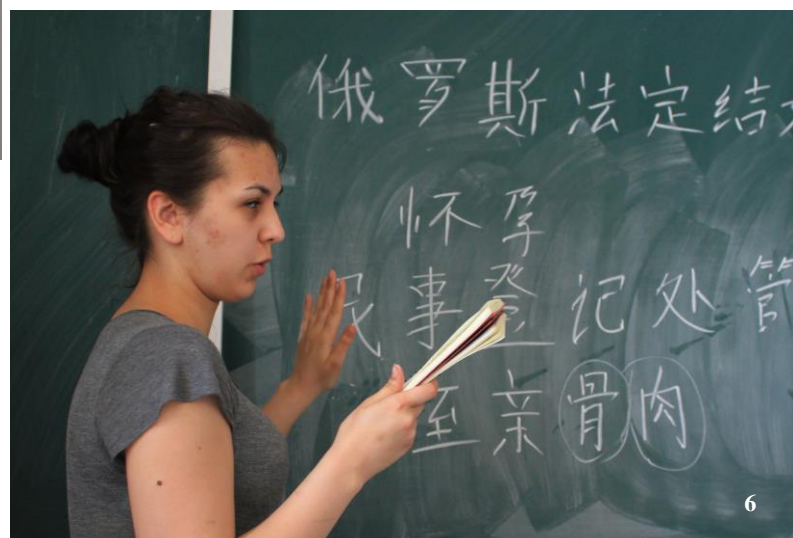 俄罗斯法定结
怀孕
民事登记处管
至亲骨肉
6